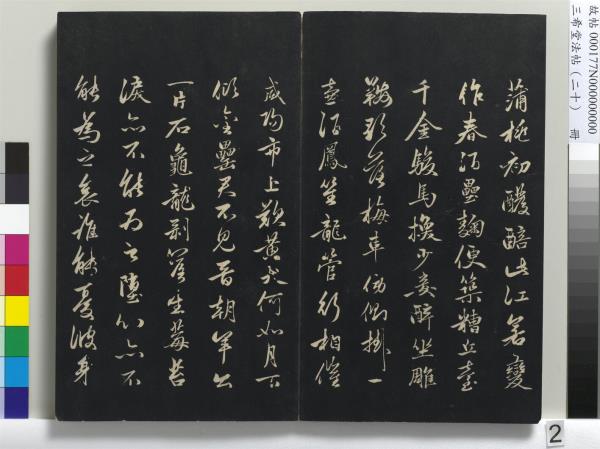 故帖 000177N000000000
三希堂法帖（二十） 冊
蒲萄初醱醅此江若變
作春酒壘麴便築糟丘臺
千金駿馬換少妾醉坐雕
鞍歌落梅車傍側掛一
壺酒鳳笙龍管行相催
咸陽市上歎黃犬何如月下
傾金罍君不見晉朝羊公
一片石龜龍剥落生莓苔
淚亦不能為之墮心亦不
能為之哀誰能憂彼身
2